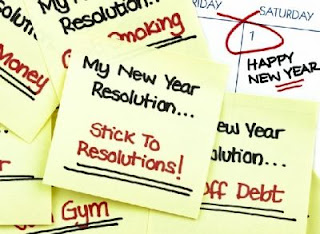 FRIDAY
SATURDAY
1
HAPPY
NEW YEAR
Smoking
Money
My New Year
Resolution...
Stick To
Resolutions!
New Year
off Debt
Gym